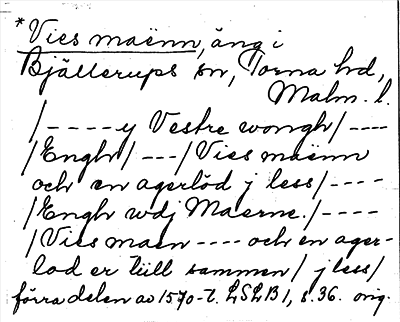 *Vies maënn, äng i
Bjällerups sn, Torna hd,
Malm. l.
/ - - - - y Vestre wongh / - - - -
/ Engh / - - - / Vies maënn
och en agerlöd j less / - - - -
/ Engh wdj Maerne. / - - - -
/ Vies maen - - - - och en ager-
lod er till sammen / j less /
förra delen av 1570-t. LSLB 1, s. 36. orig.